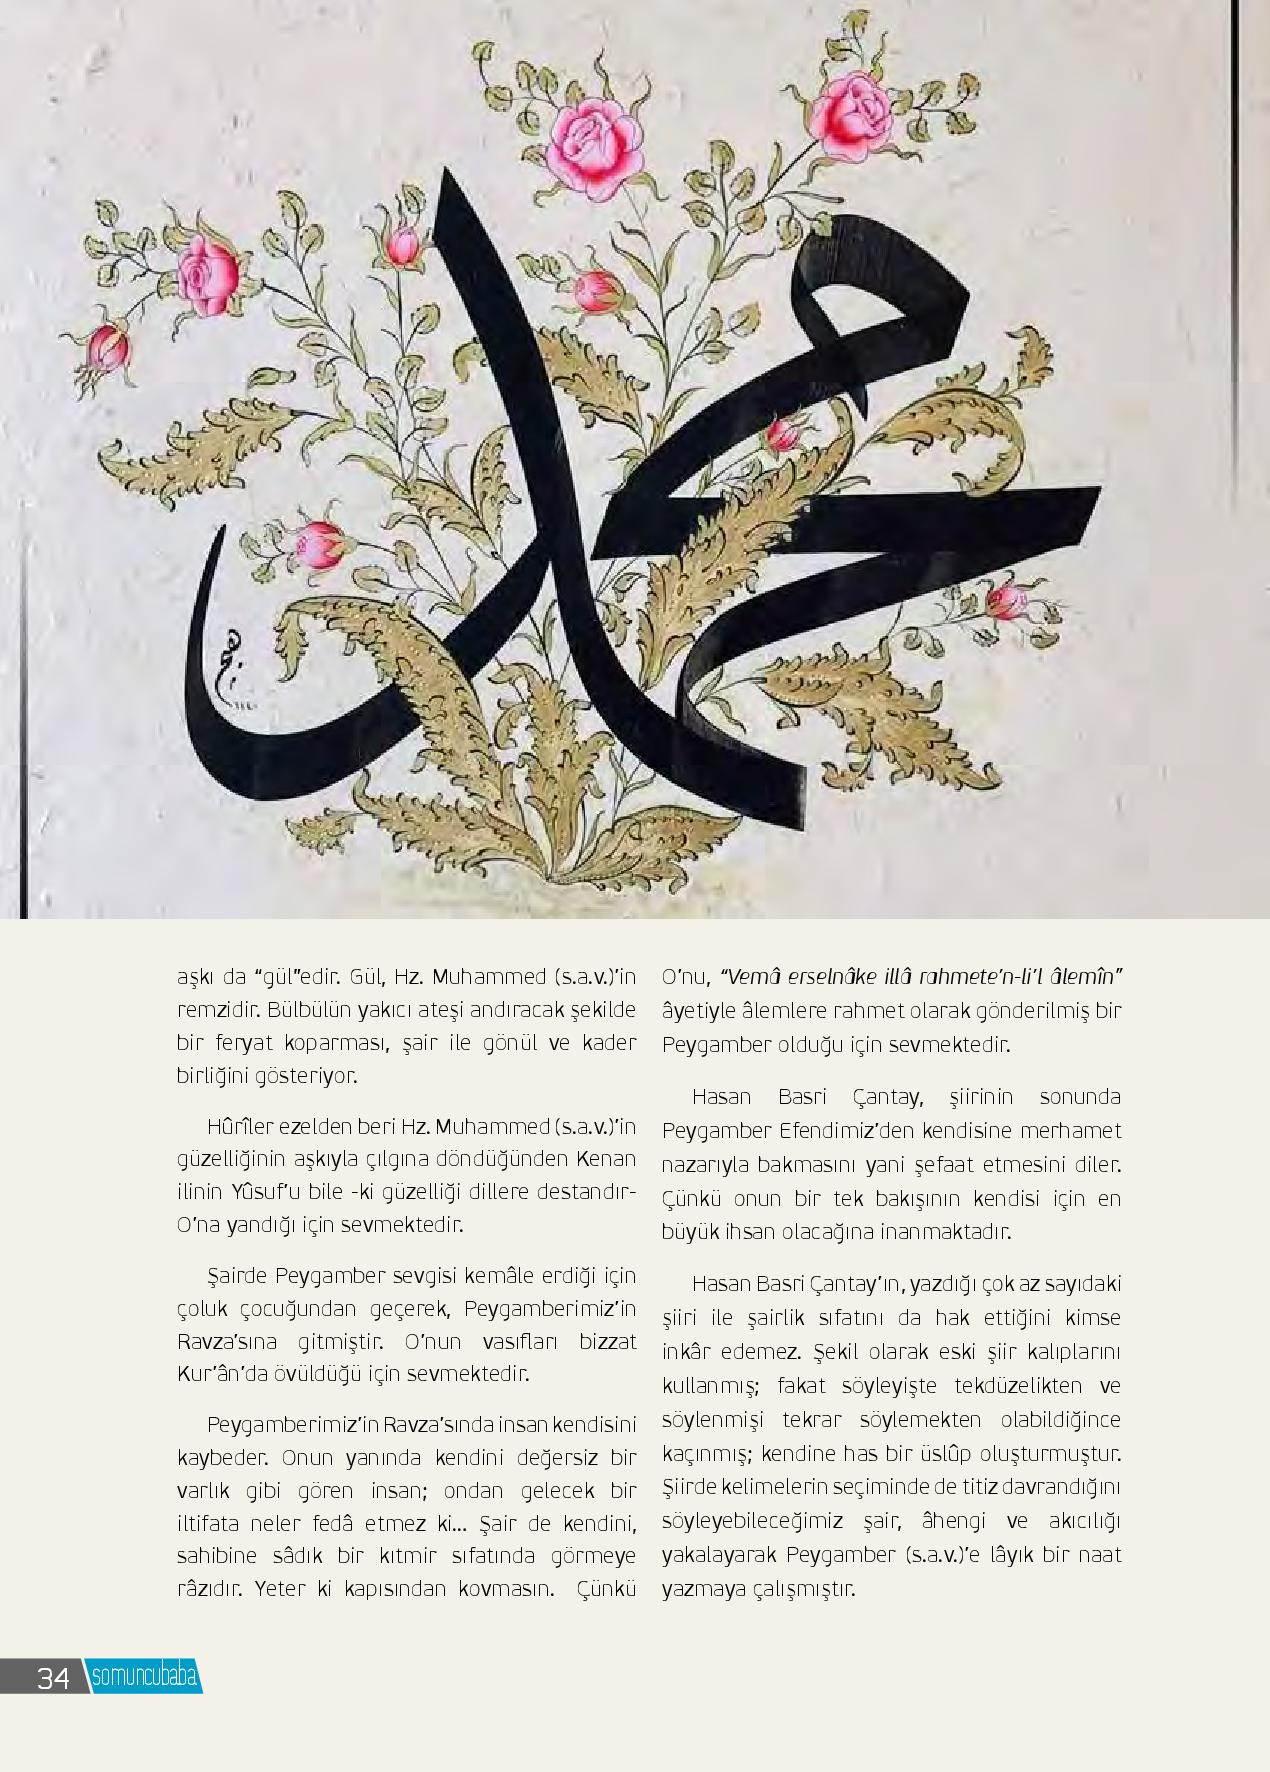 محمد
aşkı da “gül”edir. Gül, Hz. Muhammed (s.a.v.)’in
remzidir. Bülbülün yakıcı ateşi andıracak şekilde
bir feryat koparması, şair ile gönül ve kader
birliğini gösteriyor.
Hûrîler ezelden beri Hz. Muhammed (s.a.v.)’in
güzelliğinin aşkıyla çılgına döndüğünden Kenan
ilinin Yûsuf’u bile -ki güzelliği dillere destandır-
O’na yandığı için sevmektedir.
Şairde Peygamber sevgisi kemâle erdiği için
çoluk çocuğundan geçerek, Peygamberimiz’in
Ravza’sına gitmiştir. O’nun vasıfları bizzat
Kur’ân’da övüldüğü için sevmektedir.
Peygamberimiz’in Ravza’sında insan kendisini
kaybeder. Onun yanında kendini değersiz bir
varlık gibi gören insan; ondan gelecek bir
iltifata neler fedâ etmez ki... Şair de kendini,
sahibine sâdık bir kıtmir sıfatında görmeye
râzıdır. Yeter ki kapısından kovmasın. Çünkü
O’nu, “Vemâ erselnâke illâ rahmete’n-li’l âlemîn”
âyetiyle âlemlere rahmet olarak gönderilmiş bir
Peygamber olduğu için sevmektedir.
Hasan Basri Çantay, şiirinin sonunda
Peygamber Efendimiz’den kendisine merhamet
nazarıyla bakmasını yani şefaat etmesini diler.
Çünkü onun bir tek bakışının kendisi için en
büyük ihsan olacağına inanmaktadır.
Hasan Basri Çantay’ın, yazdığı çok az sayıdaki
şiiri ile şairlik sıfatını da hak ettiğini kimse
inkâr edemez. Şekil olarak eski şiir kalıplarını
kullanmış; fakat söyleyişte tekdüzelikten ve
söylenmişi tekrar söylemekten olabildiğince
kaçınmış; kendine has bir üslûp oluşturmuştur.
Şiirde kelimelerin seçiminde de titiz davrandığını
söyleyebileceğimiz şair, âhengi ve akıcılığı
yakalayarak Peygamber (s.a.v.)’e lâyık bir naat
yazmaya çalışmıştır.
34 somuncubaba